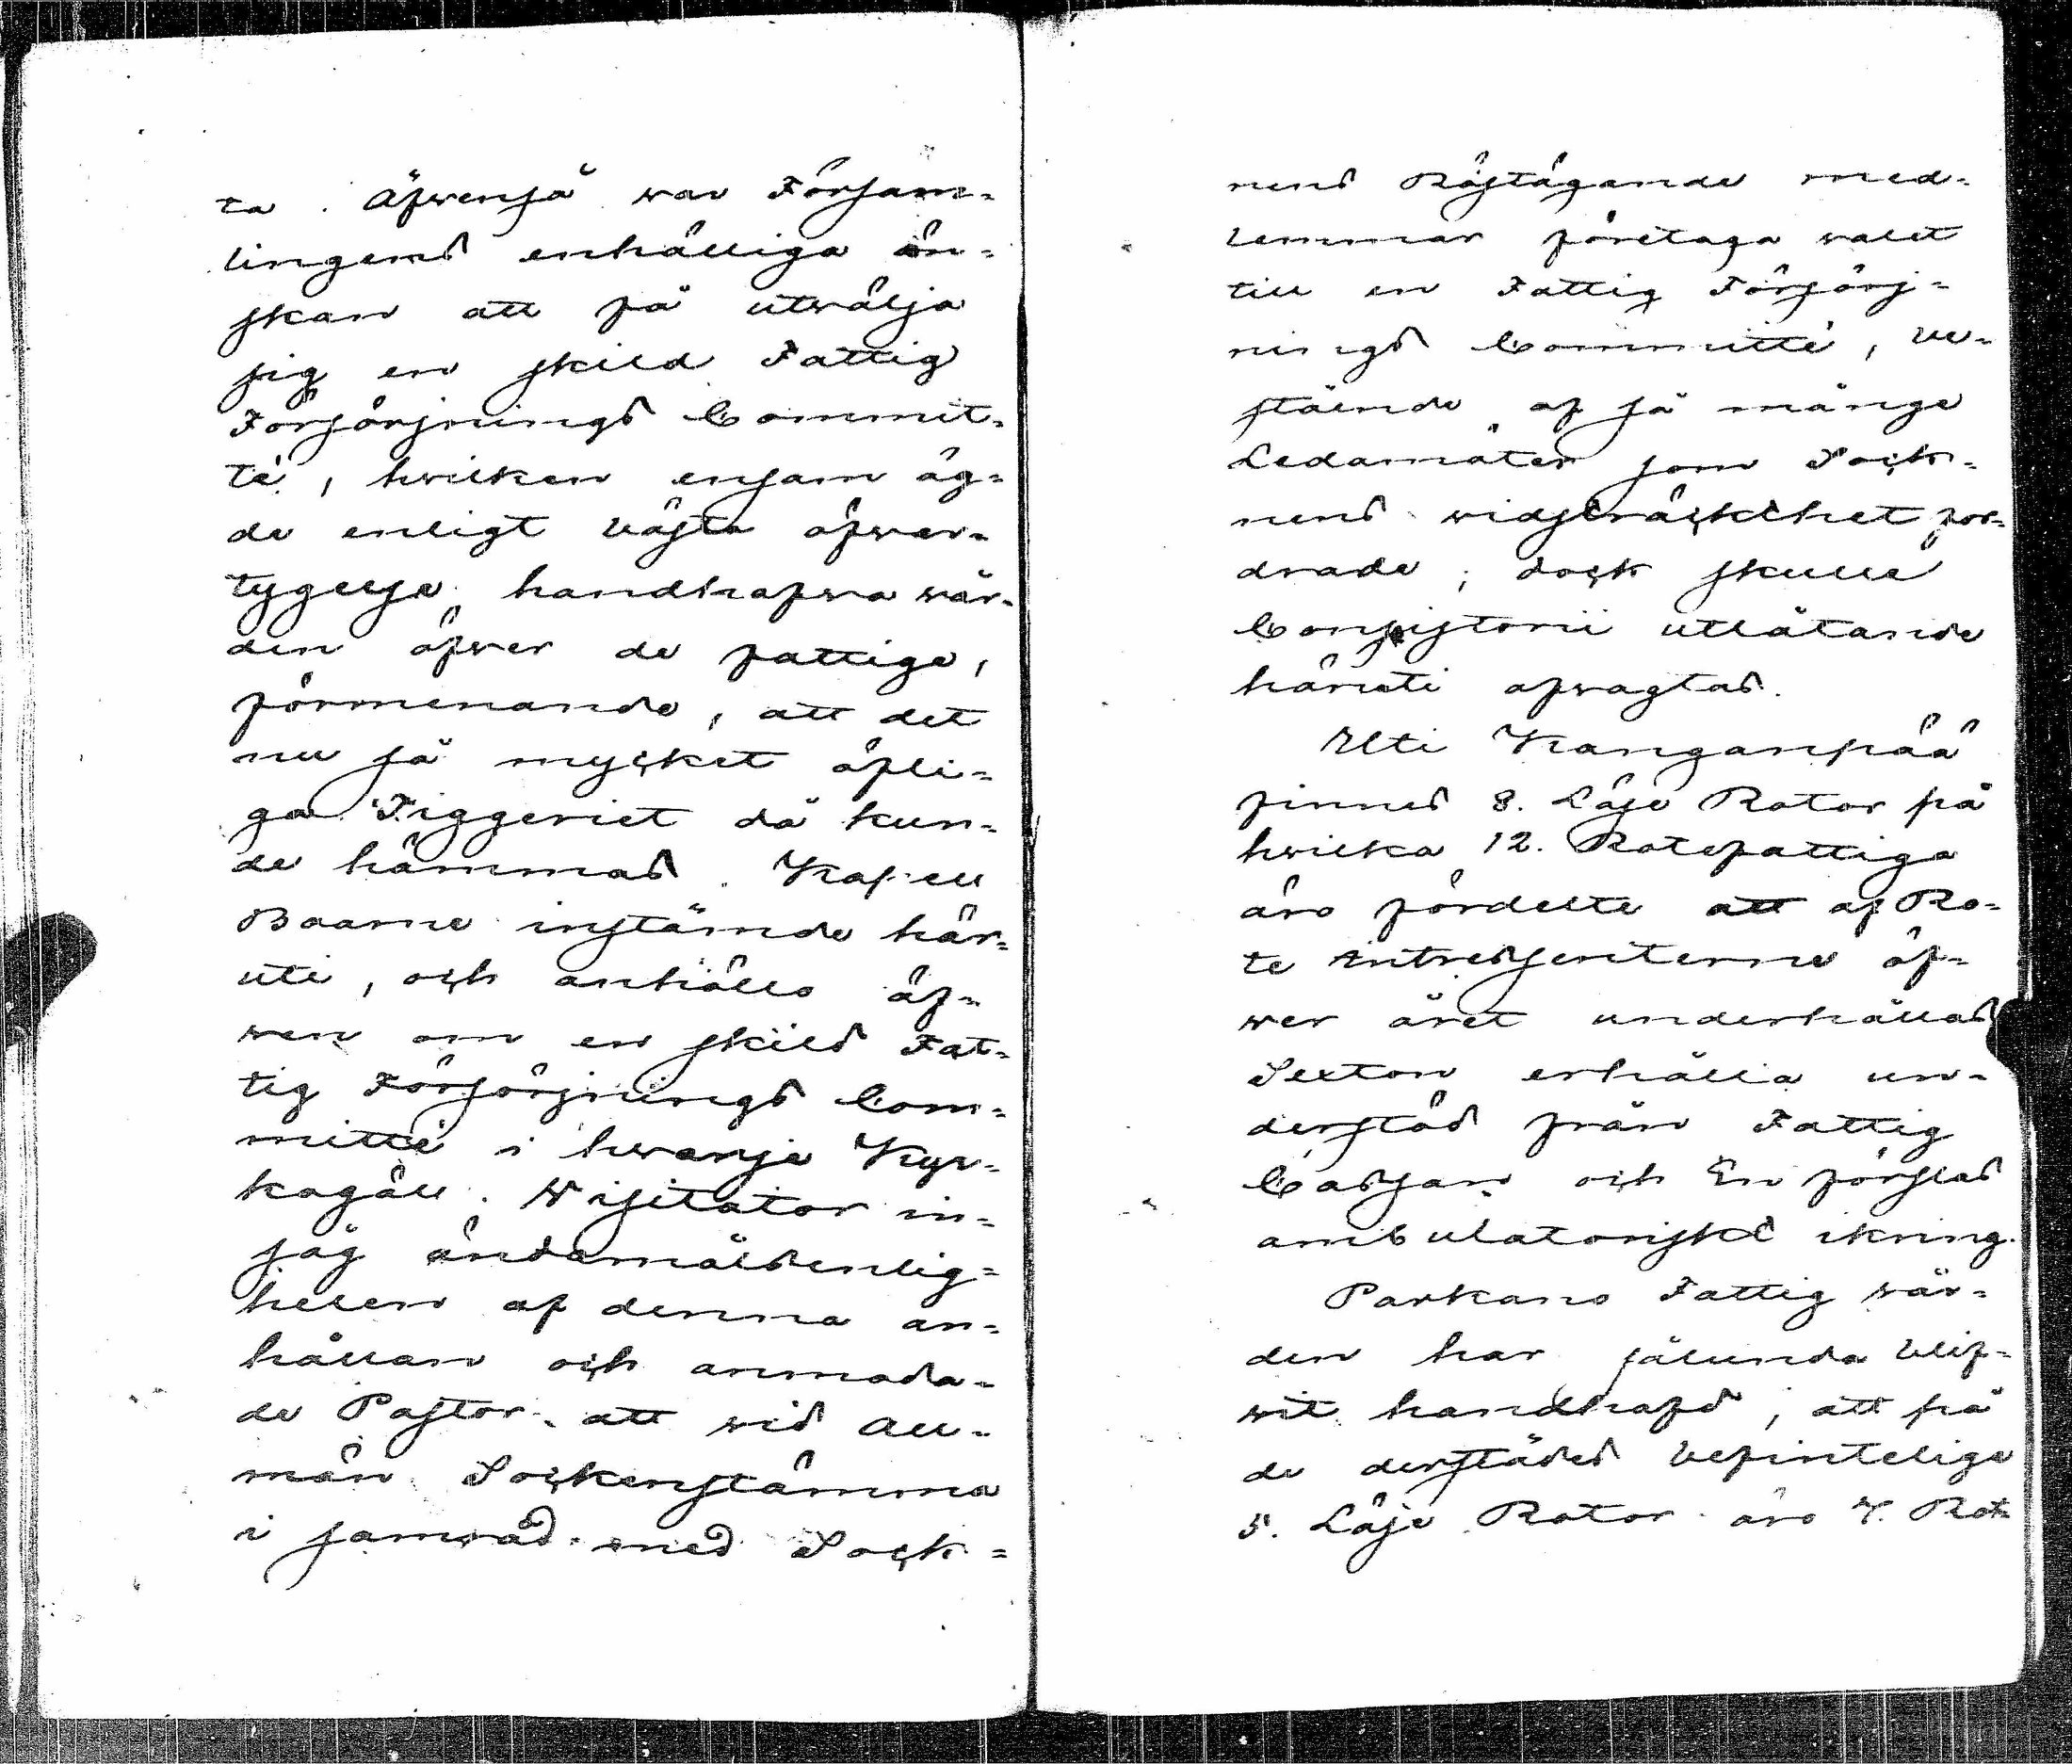 ta. Äfwenså war Försam=
lingens enhälliga ön=
skan att få utwälja
sig en skild Fattig
Försörjnings Commit=
té, hwilken ensam äg=
de enligt bästa öfwer=
tygelse handhafwa wår=
den öfwer de fattige,
förmenande, att det
nu så mycket öfli=
ga Tiggeriet då kun=
de hämmas. Kapell
Boarne instämde här=
uti, och anhöllo äf=
wen om en skild Fat=
tig Försörjnings Com=
mitté i hwarje Kyr=
kogäll. Wisitator in=
såg ändamålsenlig=
heten af denna an=
hållan och anmoda=
de Pastor att wid all=
män Sockenstämma
i samråd med Sock=
nens Röstägande med=
lemmar företaga walet
till en Fattig Försörj=
nings Committé, be=
stående af så månge
Ledamöter som Sock=
nens widsträckthet for=
drade; dock skulle
Consistorii utlåtande
häruti afwagtas.
Uti Kanganpää
finnes 8. Läse Rotar på
hwilka 12. Rotefattiga
äro fördelte att af Ro=
te intressenterne öf=
wer året underhållas
Sexton erhålla un=
derstöd från Fattig
Cassan och En förslas
ambulatoriskt ikring.
Parkano Fattig wår=
den har sålunda blif=
wit handhafd, att på
de derstädes befintelige
5. Läse Rotar äro 7. Rot=